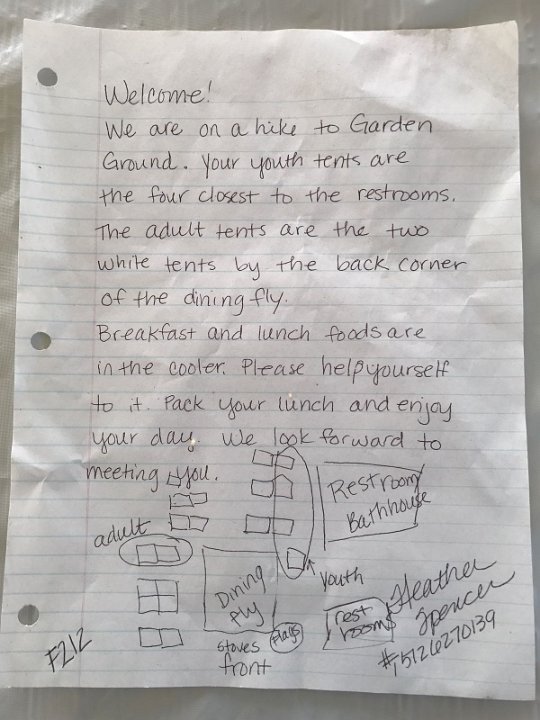 Welcome!
We are on a hike to Garden
Ground. Your youth tents are
the four closest to the restrooms.
The adult tents are the two
white tents by the back corner
of the dining fly.
Breakfast and lunch foods are
in the cooler. Please help yourself
to it. Pack your lunch and enjoy
your day. We look forward to
meeting you.
Restroom
Bathhouse
adult
Youth
Dining
fly
rest
rooms
Heather
Spencer
#15126270139
Flags
stoves
front
F212